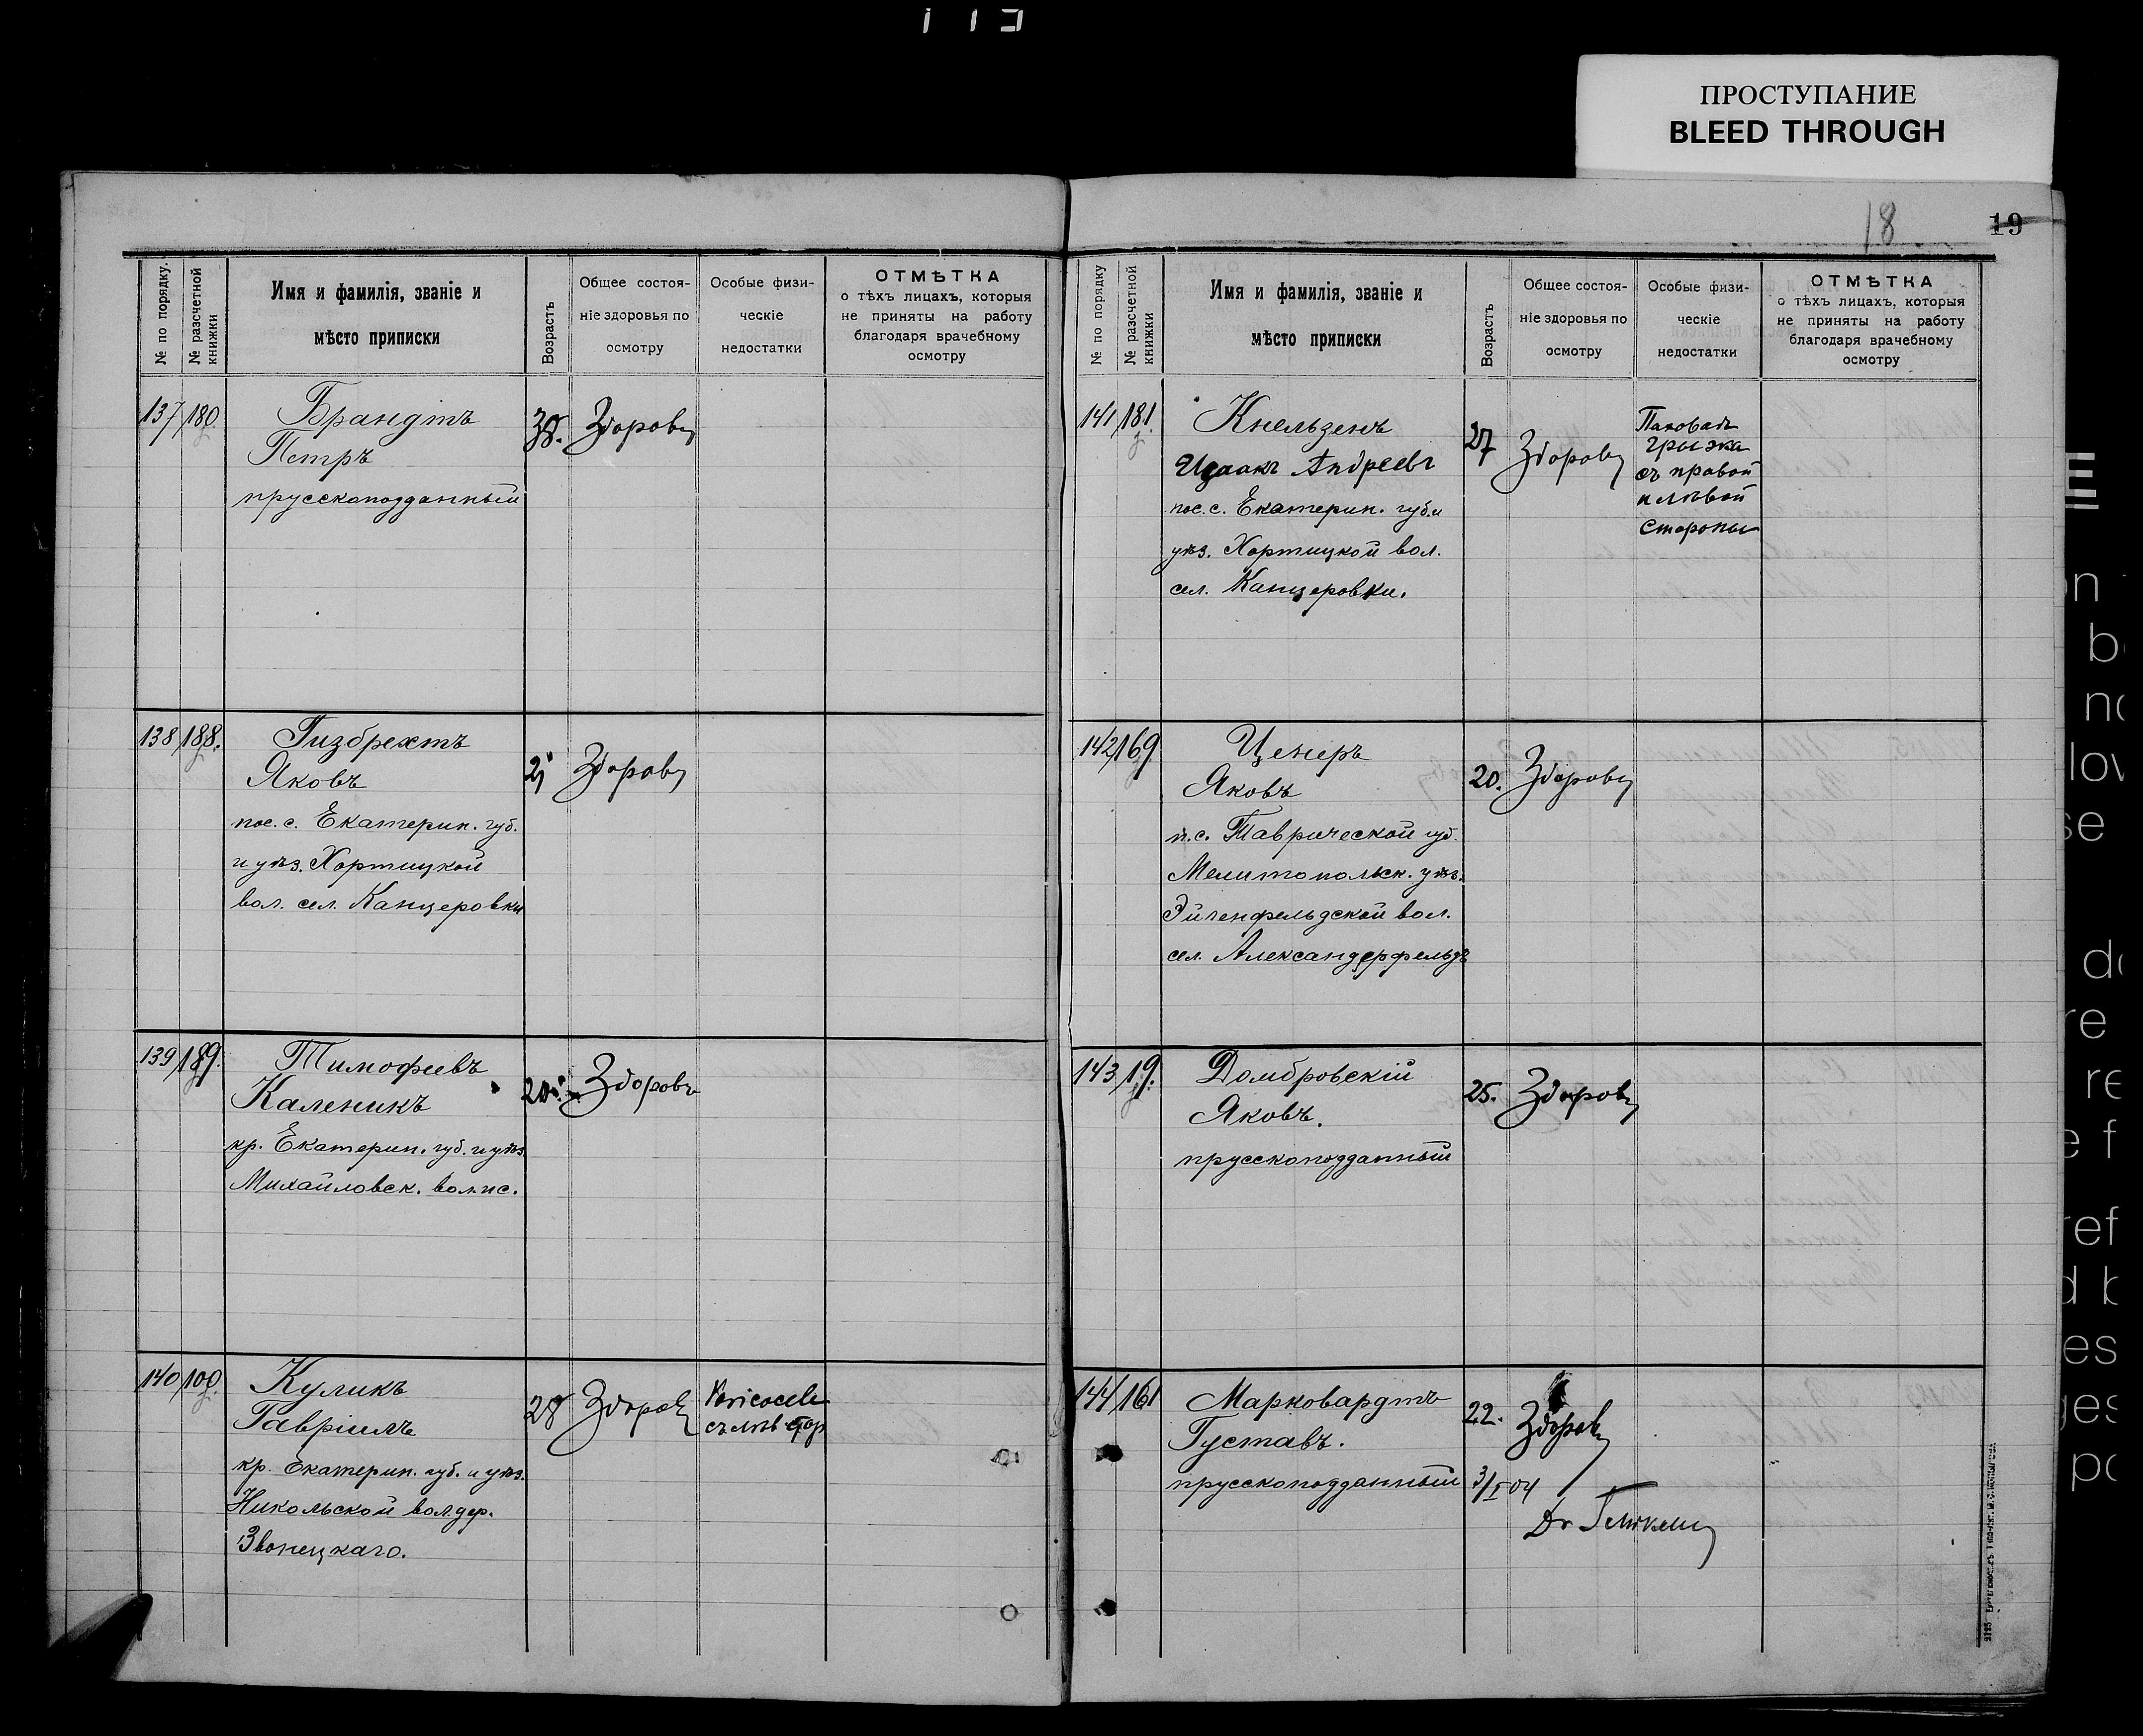 ПРОСТУПАНИЕ
BLEED THROUGH
18
19
№ по порядку.
№ разсчетной книжки
Имя и фамилія, званіе и
мѣсто приписки
Возрастъ
Общее состоя-
ніе здоровья по
осмотру
Особые физи-
ческіе
недостатки
ОТМѢТКА
о тѣхъ лицахъ, которыя
не приняты на работу
благодаря врачебному
осмотру
137 180
Брандтъ
Петръ
прусскоподданный
Здоровъ
138 188.
Гизбрехтъ
Яковъ
пос. с. Екатерин. губ.
и уѣз. Хортицкой
вол. сел. Канцеровки
Здоровъ
139 189.
Тимофеевъ
Каленикъ
кр. Екатерин. губ. и уѣз.
Михайловск. вол. и с.
Здоровъ
140 100.
Куликъ
Гавріилъ
кр. Екатерин. губ. и уѣз.
Никольской вол. дер.
Звонецкаго.
28
Здоровъ
Varicocele
съ лѣв стор
№ по порядку
№ разсчетной книжки
Имя и фамилія, званіе и
мѣсто приписки
Возрастъ
Общее состоя-
ніе здоровья по
осмотру
Особые физи-
ческіе
недостатки
ОТМѢТКА
о тѣхъ лицахъ, которыя
не приняты на работу
благодаря врачебному
осмотру
141 181.
Кнельзенъ
Исаакъ Андреевъ
пос. с. Екатерин. губ. и
уѣз. Хортицкой вол.
сел. Канцеровки.
27
Здоровъ
Паховая
грыжа
съ правой
и лѣвой
стороны
142 169
Ценеръ
Яковъ
п. с. Таврической губ.
Мелитопольск. уѣз.
Эйгенфельдской вол.
сел. Александерфельдъ
20.
Здоровъ
143 19.
Домбровскій
Яковъ.
прусскоподданный
25.
Здоровъ
144 161
Марковардтъ
Густавъ.
прусскоподданный
22.
Здоровъ
3/I 04
Dr